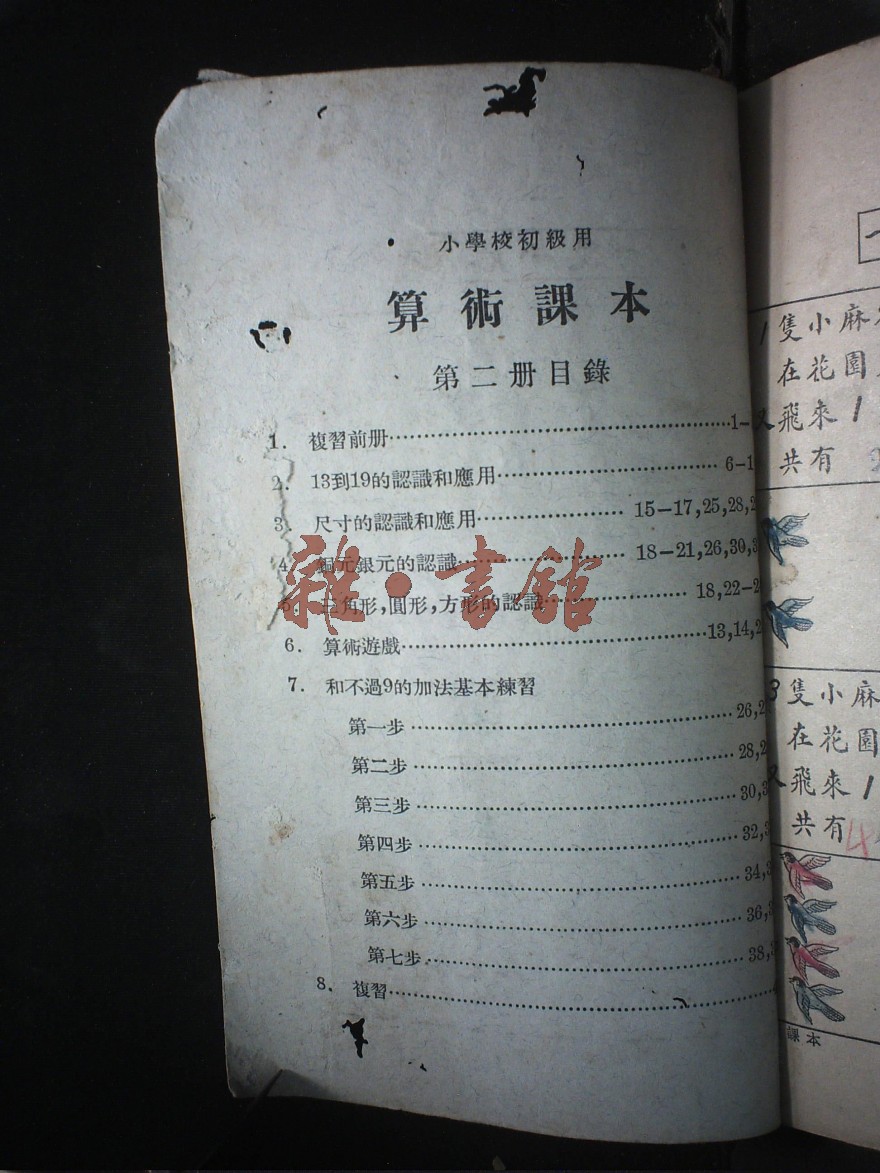 小學校初級用
算術課本
第二册目錄
1. 複習前册……1-
2. 13到19的認識和應用……6-1
3. 尺寸的認識和應用……15-17,25,28,2
4. 銅元銀元的認識……18-21,26,30,3
5. 三角形,圓形,方形的認識……18,22-2
6. 算術遊戲……13,14,2
7. 和不過9的加法基本練習
第一步……26,2
第二步……28,2
第三步……30,3
第四步……32,3
第五步……34,3
第六步……36,3
第七步……38,3
8. 複習……
雜·書館
1 隻小麻
在花園
又飛來 1
共有
3 隻小麻
在花園
又飛來 1
共有 4
課本